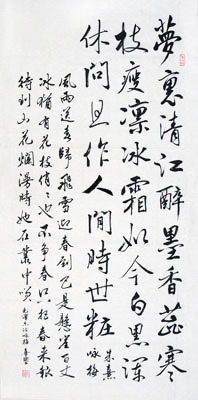 夢裏清江醉墨香蕊寒
枝瘦凛冰霜如今白黑渾
休問且作人間時世粧
朱熹
詠梅
風雨送春歸飛雪迎春到已是懸崖百丈
冰猶有花枝俏俏也不爭春只把春來報
待到山花爛漫時她在叢中笑 毛澤東詠梅